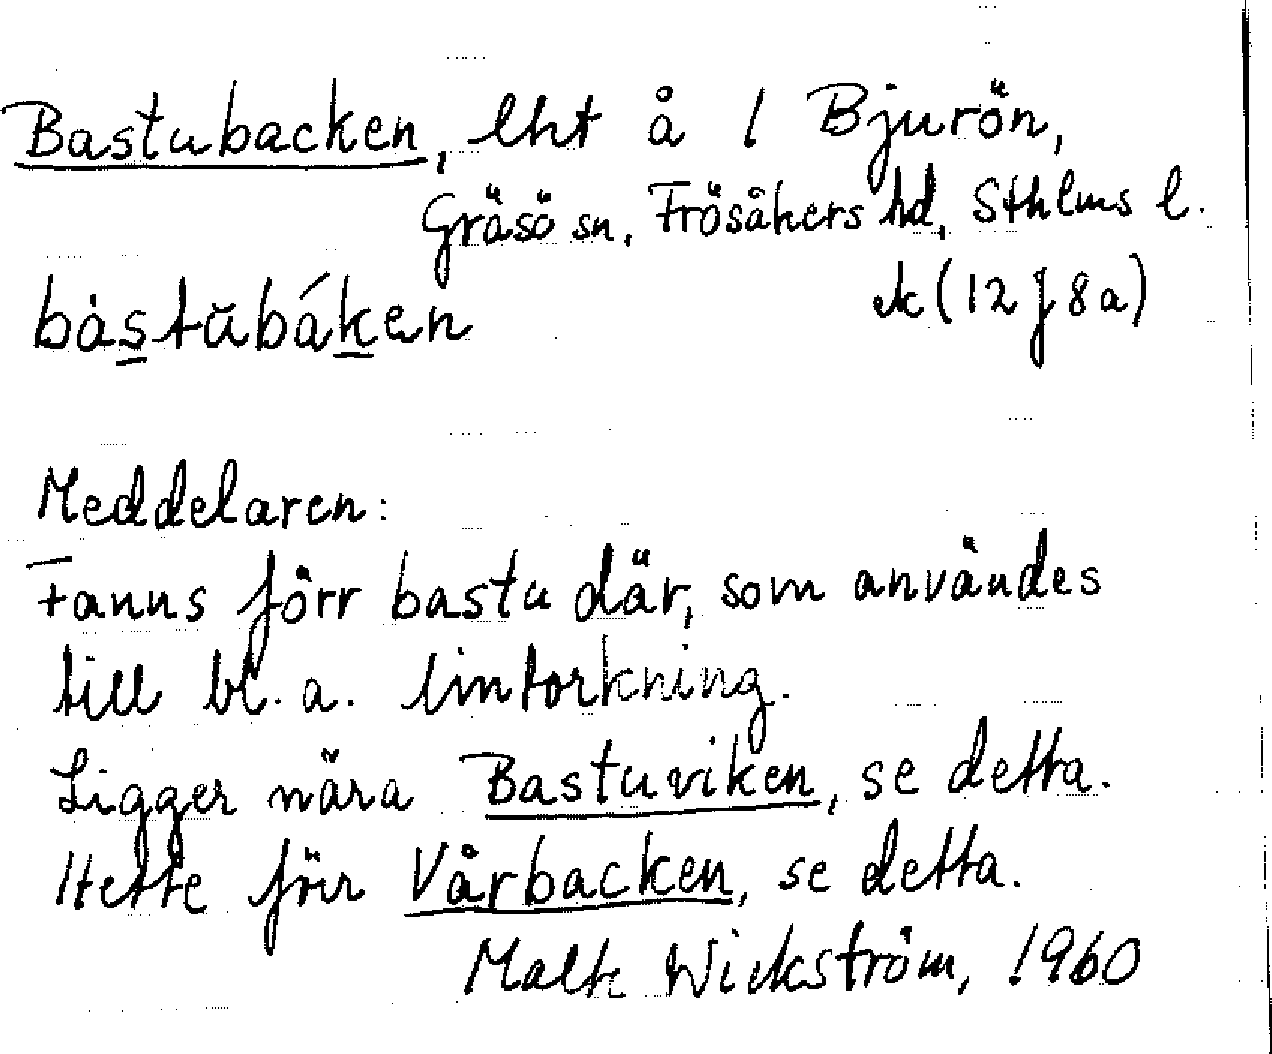 Bastubacken, lht å 1 Bjurön,
Gräsö sn, Frösåkers hd, Sthlms l.
bàstŭbáken ek (12 J 8 a)
Meddelaren:
Fanns förr bastu där, som användes
till bl. a. lintorkning.
Ligger nära Bastuviken, se detta.
Hette förr Vårbacken, se detta.
Malte Wickström, 1960